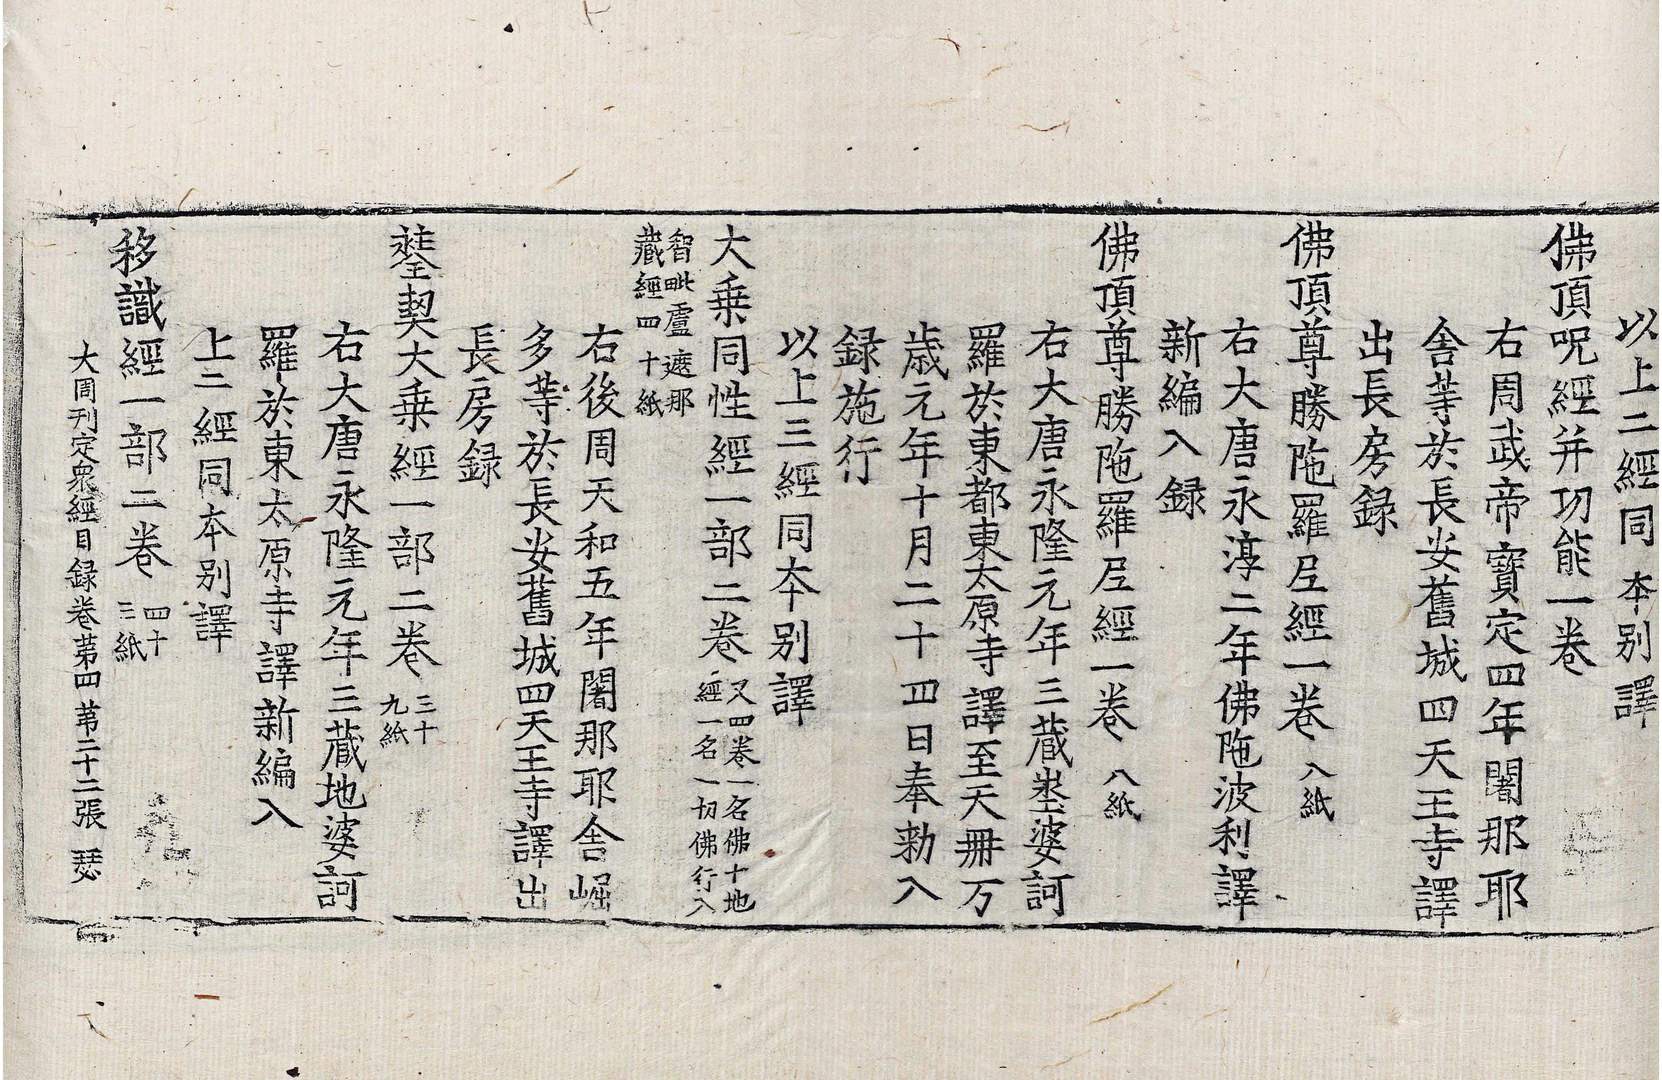 以上二經同本别譯
佛頂呪經并功能一卷
右周武帝寳定四年闍那耶
舎等於長安舊城四天王寺譯
出長房録
佛頂尊勝陁羅尼經一卷 八紙
右大唐永淳二年佛陁波利譯
新編入録
佛頂尊勝陁羅尼經一卷 八紙
右大唐永隆元年三蔵埊婆訶
羅於東都東太原寺譯至天冊万
歳元年十月二十四日奉勑入
録施行
以上三經同本别譯
大乗同性經一部二卷 又四卷一名佛十地
經一名一切佛行入
智毗盧遮那
藏經四十紙
右後周天和五年闍那耶舎崛
多等於長安舊城四天王寺譯出
長房録
契大乗經一部二卷 三十
九紙
右大唐永隆元年三蔵地婆訶
羅於東太原寺譯新編入
上二經同本别譯
移識經一部二卷 四十
三紙
大周刊定衆經目録卷苐四 苐二十二張 瑟